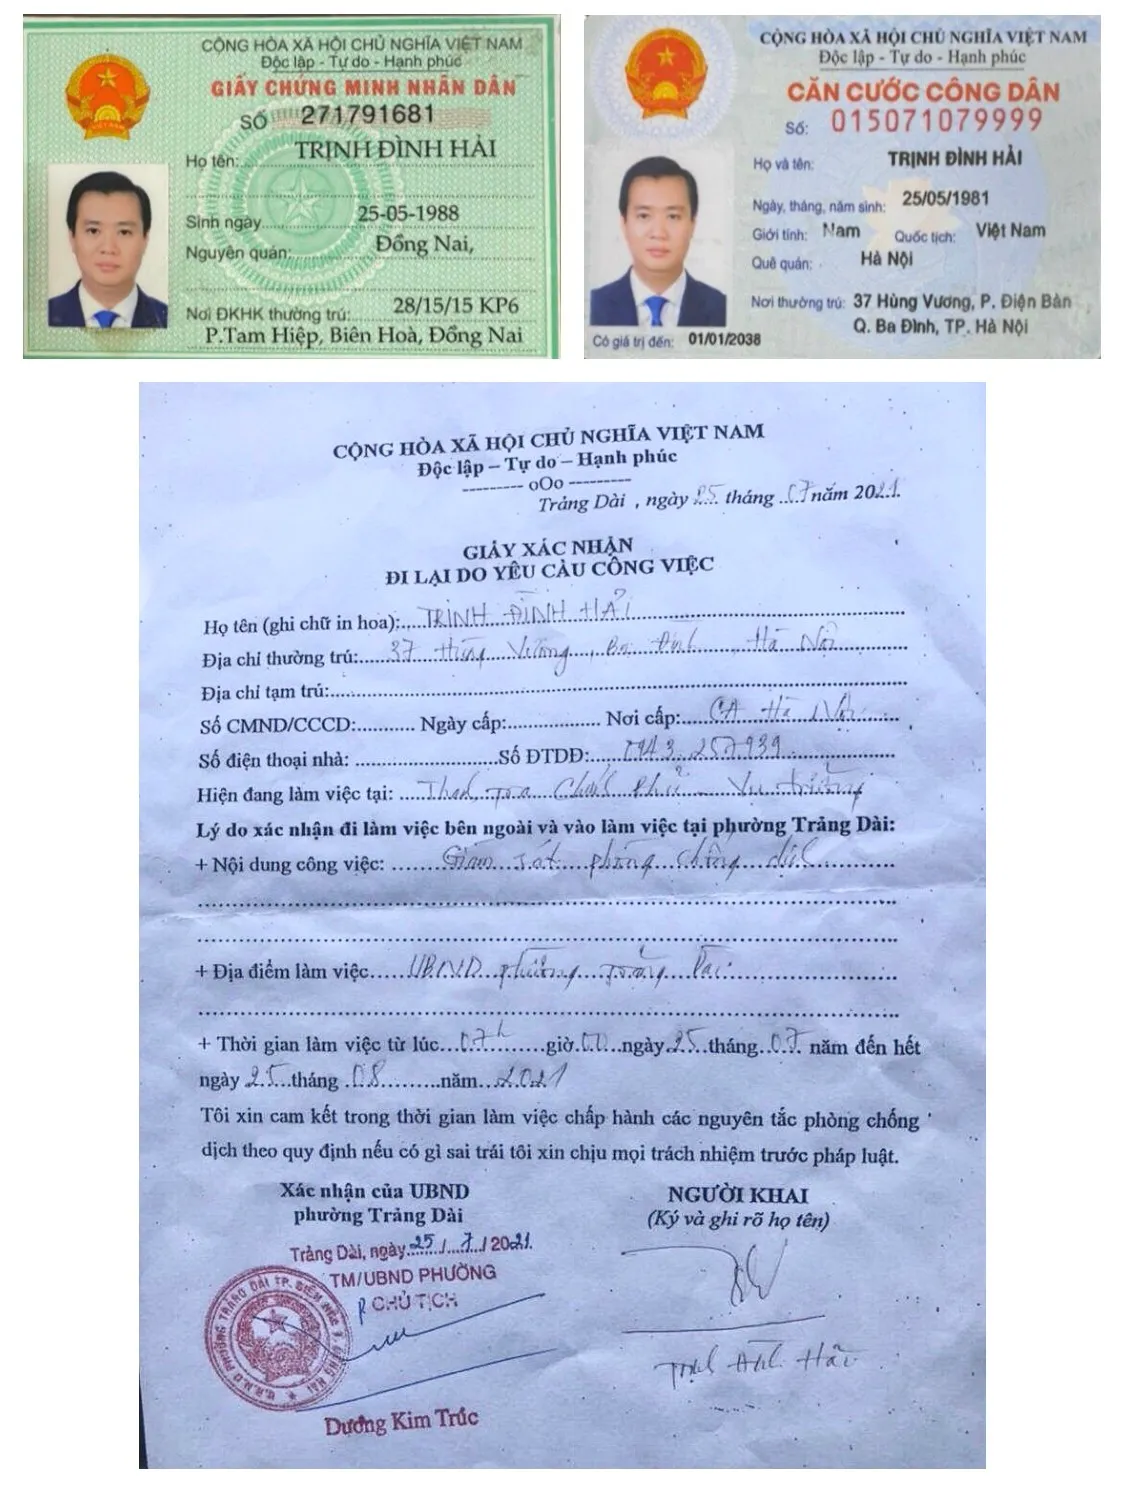 CỘNG HÒA XÃ HỘI CHỦ NGHĨA VIỆT NAM
Độc lập - Tự do - Hạnh phúc
GIẤY CHỨNG MINH NHÂN DÂN
SỐ 271791681
Họ tên: TRỊNH ĐÌNH HẢI
Sinh ngày 25-05-1988
Nguyên quán: Đồng Nai,
Nơi ĐKHK thường trú: 28/15/15 KP6
P.Tam Hiệp, Biên Hoà, Đồng Nai
CỘNG HÒA XÃ HỘI CHỦ NGHĨA VIỆT NAM
Độc lập - Tự do - Hạnh phúc
CĂN CƯỚC CÔNG DÂN
Số: 015071079999
Họ và tên: TRỊNH ĐÌNH HẢI
Ngày, tháng, năm sinh: 25/05/1981
Giới tính: Nam Quốc tịch: Việt Nam
Quê quán: Hà Nội
Nơi thường trú: 37 Hùng Vương, P. Điện Bàn
Q. Ba Đình, TP. Hà Nội
Có giá trị đến: 01/01/2038
CỘNG HÒA XÃ HỘI CHỦ NGHĨA VIỆT NAM
Độc lập – Tự do – Hạnh phúc
--------- oOo ---------
Trảng Dài , ngày 25 tháng 07 năm 2021.
GIẤY XÁC NHẬN
ĐI LẠI DO YÊU CẦU CÔNG VIỆC
Họ tên (ghi chữ in hoa): TRỊNH ĐÌNH HẢI
Địa chỉ thường trú: 37 Hùng Vương, Ba Đình, Hà Nội
Địa chỉ tạm trú:
Số CMND/CCCD: Ngày cấp: Nơi cấp: CA Hà Nội
Số điện thoại nhà: Số ĐTDĐ: 0943.257939
Hiện đang làm việc tại: Thanh tra Chính Phủ - Vụ trưởng
Lý do xác nhận đi làm việc bên ngoài và vào làm việc tại phường Trảng Dài:
+ Nội dung công việc: Giám sát phòng chống dịch
+ Địa điểm làm việc UBND phường Trảng Dài
+ Thời gian làm việc từ lúc 07h giờ 00 ngày 25 tháng 07 năm đến hết
ngày 25 tháng 08 năm 2021
Tôi xin cam kết trong thời gian làm việc chấp hành các nguyên tắc phòng chống
dịch theo quy định nếu có gì sai trái tôi xin chịu mọi trách nhiệm trước pháp luật.
Xác nhận của UBND
phường Trảng Dài
Trảng Dài, ngày 25 / 7 / 2021.
TM/UBND PHƯỜNG
P CHỦ TỊCH
Dương Kim Trúc
NGƯỜI KHAI
(Ký và ghi rõ họ tên)
Trịnh Đình Hải